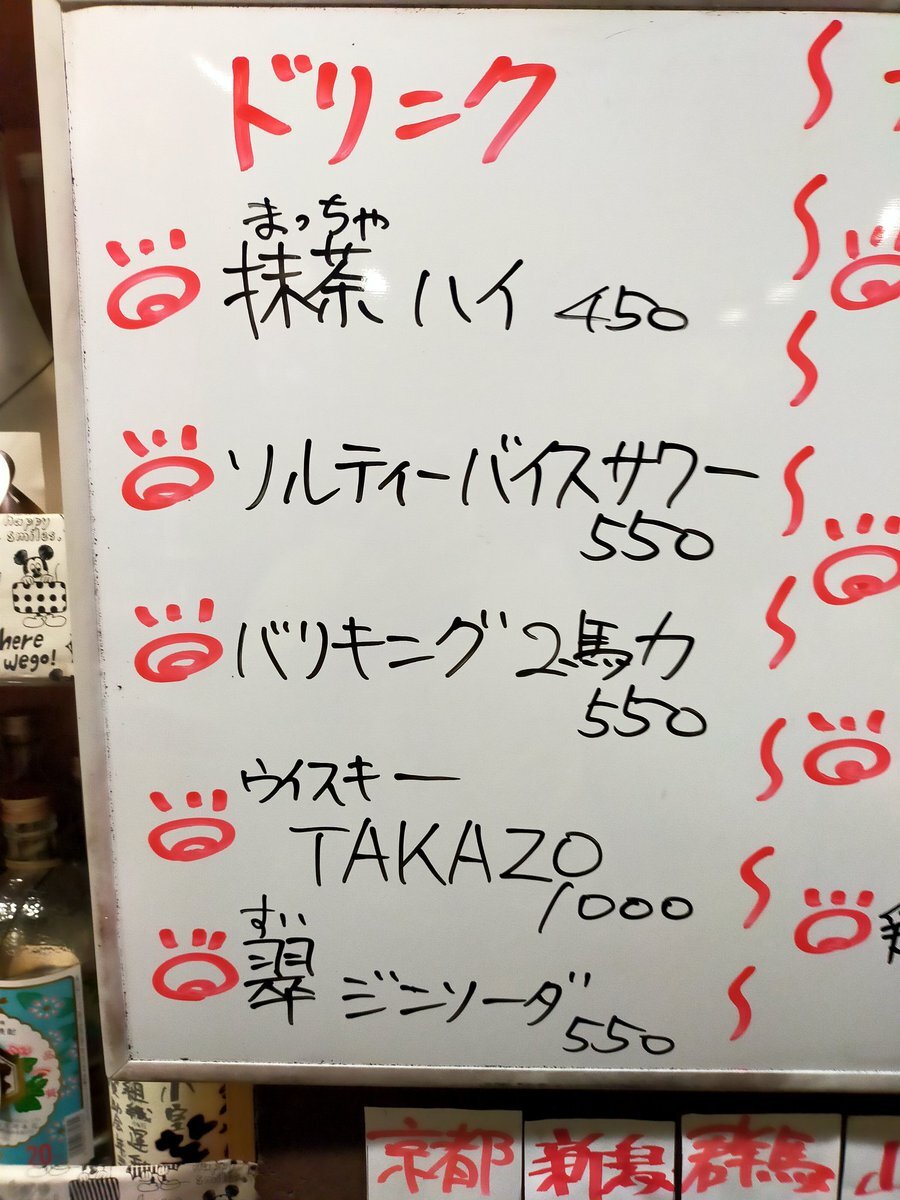 ドリンク
まっちゃ
抹茶ハイ 450
ソルティーバイスサワー
550
バリキング2馬力
550
ウイスキー
TAKAZO
1000
すい
翠 ジンソーダ
550
happy
smiles.
here
we go!
20
京都
新潟
群馬